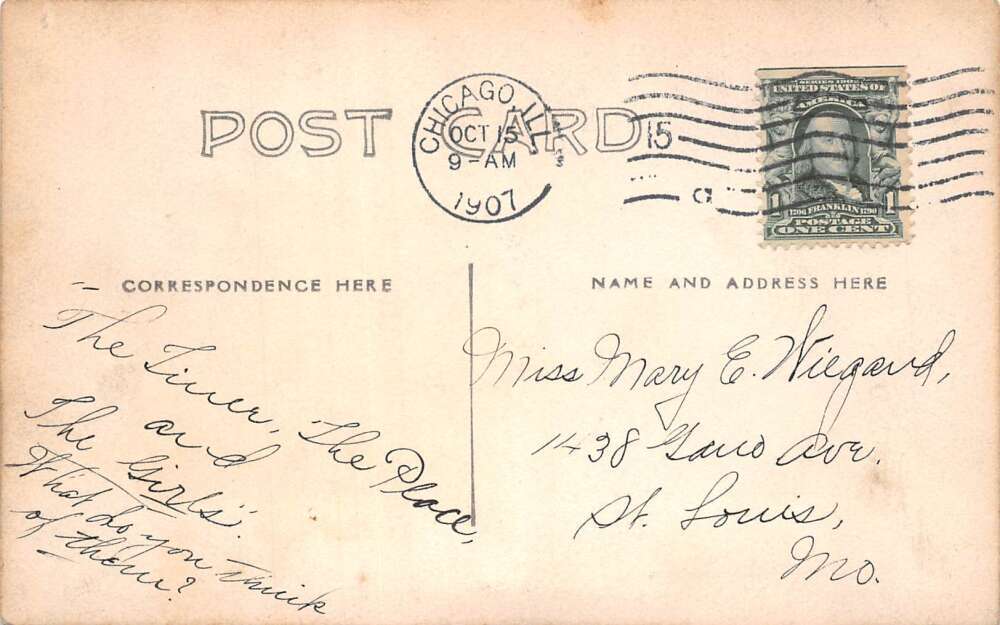 POST CARD
CHICAGO, ILL.
OCT 15
9-AM
1907
15
SERIES 1902
UNITED STATES OF
AMERICA
1 1706 FRANKLIN 1790 1
POSTAGE
ONE CENT
CORRESPONDENCE HERE
"The Time, The Place,
and
The Girls".
What do you think
of them?
NAME AND ADDRESS HERE
Miss Mary E. Wiegand,
1438 Gano Ave.
St. Louis,
Mo.